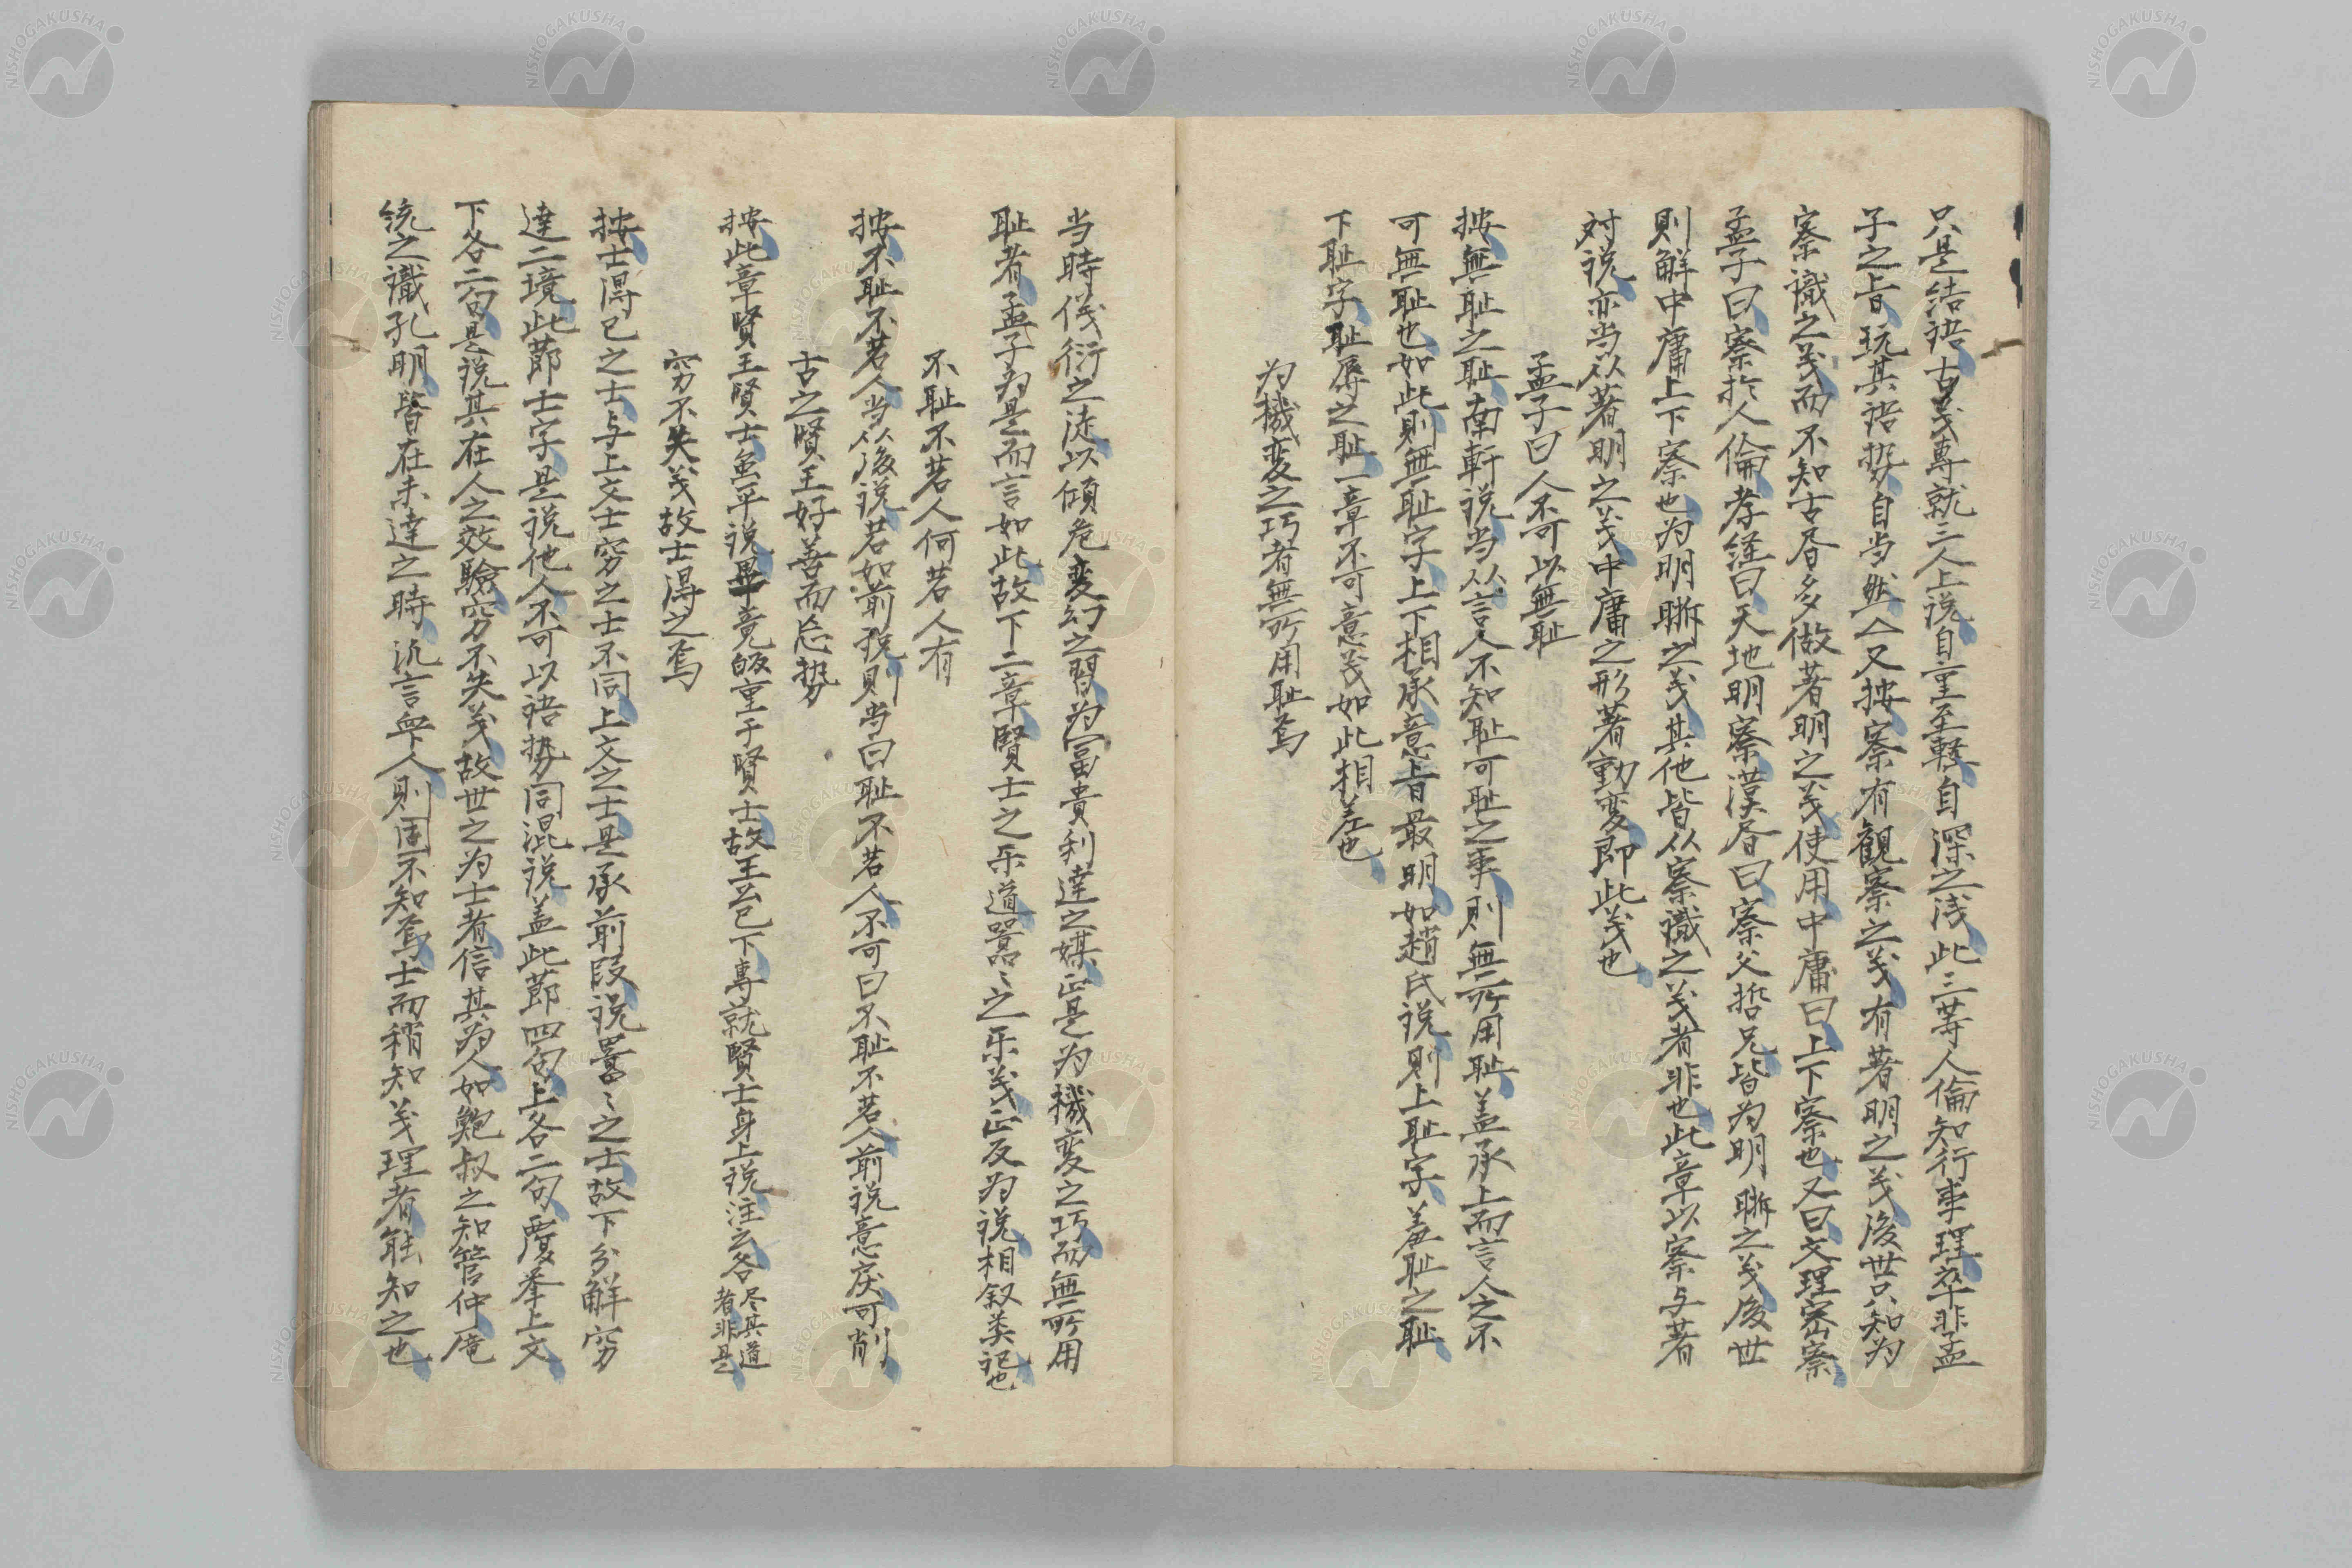 只是結語古義專就三人上説自重至軽自深之浅此三等人倫知行事理卒非孟
子之旨玩其語勢自当然今又按察有観察之義有著明之義後世只知为
察識之義而不知古昏多做著明之義使用中庸曰上下察也又曰文理密察
孟子曰察於人倫孝経曰天地明察漢昏曰察父哲兄皆为明晣之義後世
則解中庸上下察也为明晣之義其他皆从察識之義者非也此章以察与著
対説亦当从著明之義中庸之形著動変即此義也
孟子曰人不可以無耻
按無耻之耻南軒説当从言人不知耻可耻之事則無所用耻盖承上而言人之不
可無耻也如此則無耻字上下相承意旨最明如趙氏説則上耻字羞耻之耻
下耻字耻辱之耻一章不可意義如此相差也
为機変之巧者無所用耻焉
当時儀衍之徒以傾危変幻之習为冨貴利達之媒正是为機変之巧而無所用
耻者孟子为是而言如此故下二章賢士之乐道囂々之乐義正反为説相叙类記也
不耻不若人何若人有
按不耻不若人当从後説若如前説則当曰耻不若人不可曰不耻不若人前説意戻可削
古之賢王好善而忘勢
按此章賢王賢士虽平説畢竟皈重于賢士故王公已下專就賢士身上説注云各尽其道者非是
窮不失義故士得已焉
按士得已之士与上文士窮之士不同上文之士是承前段説囂々之士故下分解窮
達二境此節士字是説他人不可以語勢同混説盖此節四句上各二句覆挙上文
下各二句是説其在人之效驗窮不失義故世之为士者信其为人如鮑叔之知管仲庵
統之識孔明皆在未達之時汎言毎人則固不知焉士而稍知義理者能知之也
NISHOGAKUSHA